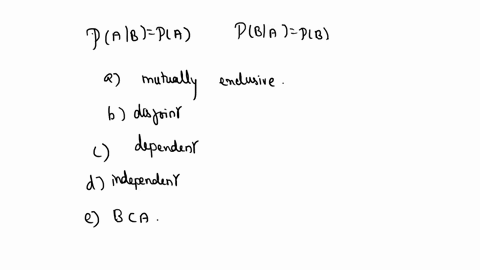 P(A|B)=P(A) P(B|A)=P(B)
a) mutually exclusive.
b) disjoint
c) dependent
d) independent
e) B⊂A.